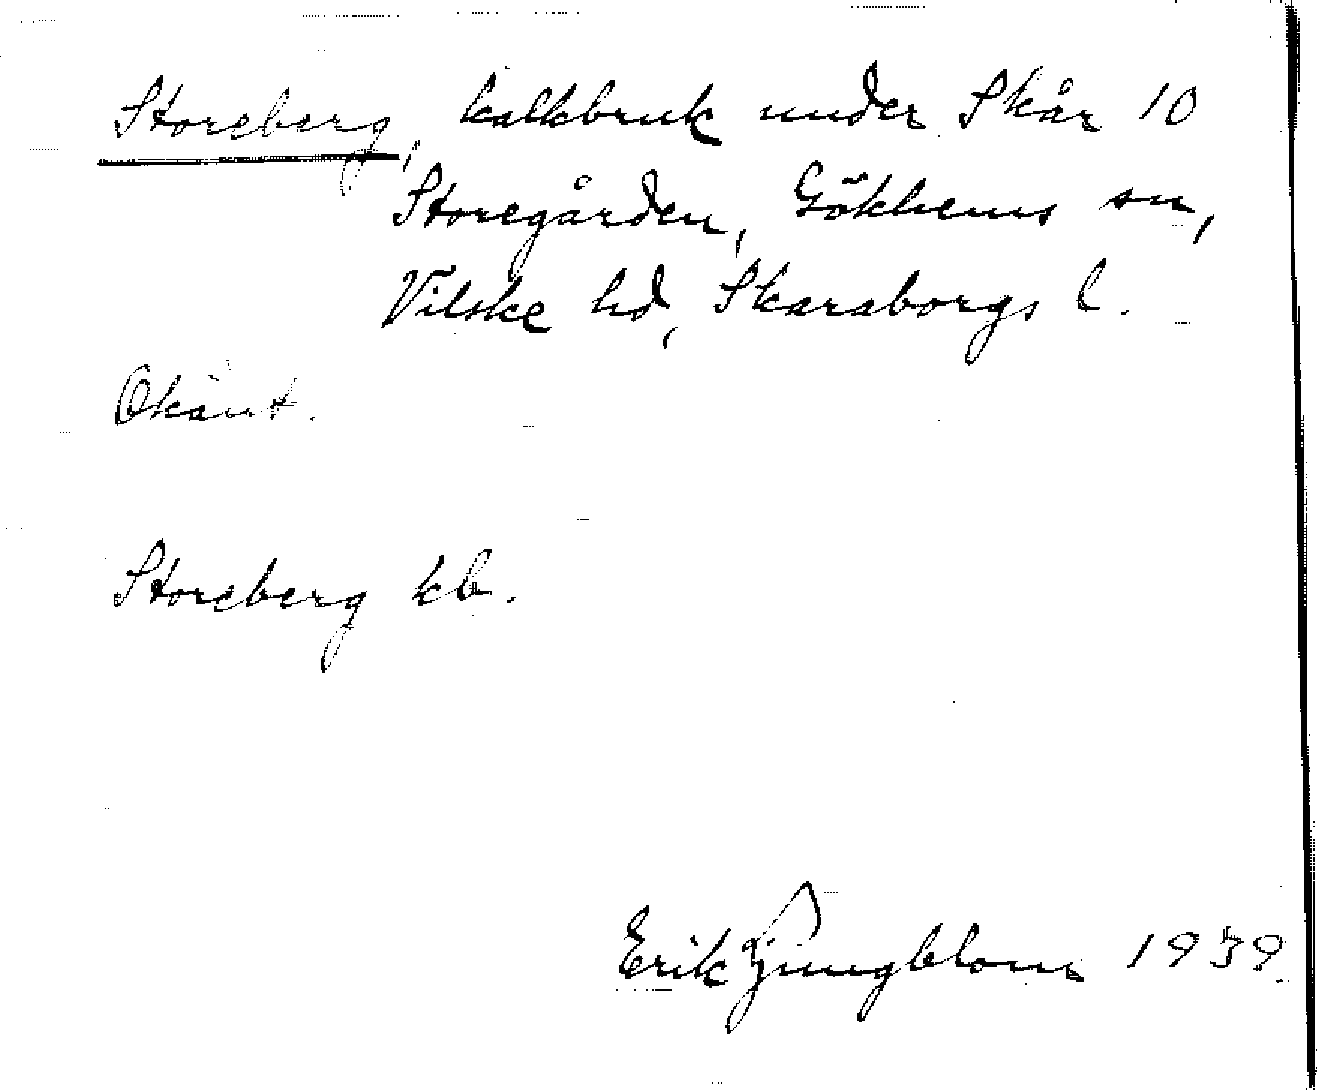 Storeberg, kalkbruk under Skår 10
Storegården, Gökhems sn,
Vilske hd, Skaraborgs l.
Okänt.
Storeberg kb.
Erik Ljungblom 1939